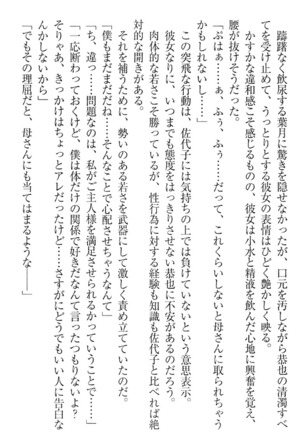 躊躇なく飲尿する葉月に驚きを隠せなかったが、口元を汚した恭也の清濁すべ
てを受け止めて、うっとりとする彼女の表情はひどく艶かしく映る。
かすかな違和感こそ感じるものの、彼女は小水と精液を飲んだ心地に興奮を覚え、
腰が抜けそうだった。
「ぷはぁ……ぁ、ふぅ、ふぅ……だって、これくらいしないと母さんに取られちゃう
かもしれないし……」
この突飛な行動は、佐代子には気持ちの上では負けていないという意思表示。
彼女なりに、いつまでも態度をはっきりさせない恭也に不安があるのだろう。
肉体的な若さこそ勝っているが、性行為に対する経験も知識も佐代子と比べれば絶
対的な開きがある。
それを補うために、勢いのある若さを武器にして激しく責め立てていたのだ。
「僕もまだまだだね……そんなことで心配させちゃうなんて」
「ち、違……問題なのは、私がご主人様を満足させられるかっていうことで……」
「一応断わっておくけど、僕は体だけの関係で好きだなんて言ったつもりないよ？
そりゃあ、きっかけはちょっとアレだったけど……さすがにどうでもいい人に告白な
んかしないから」
「でもその理屈だと、母さんにも当てはまるような――」